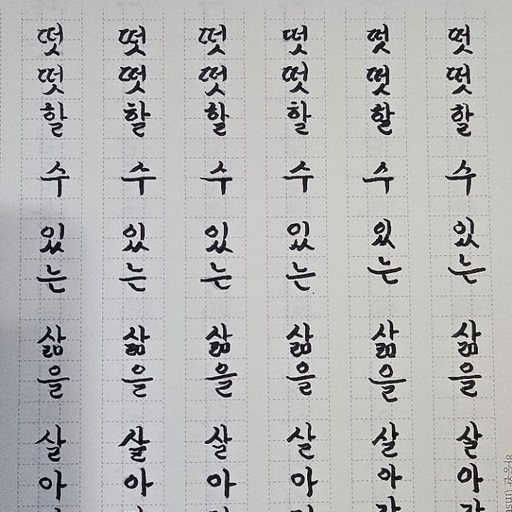 떳떳할 수 있는 삶을 살아
떳떳할 수 있는 삶을 살아
떳떳할 수 있는 삶을 살아
떳떳할 수 있는 삶을 살아
떳떳할 수 있는 삶을 살아
떳떳할 수 있는 삶을 살아